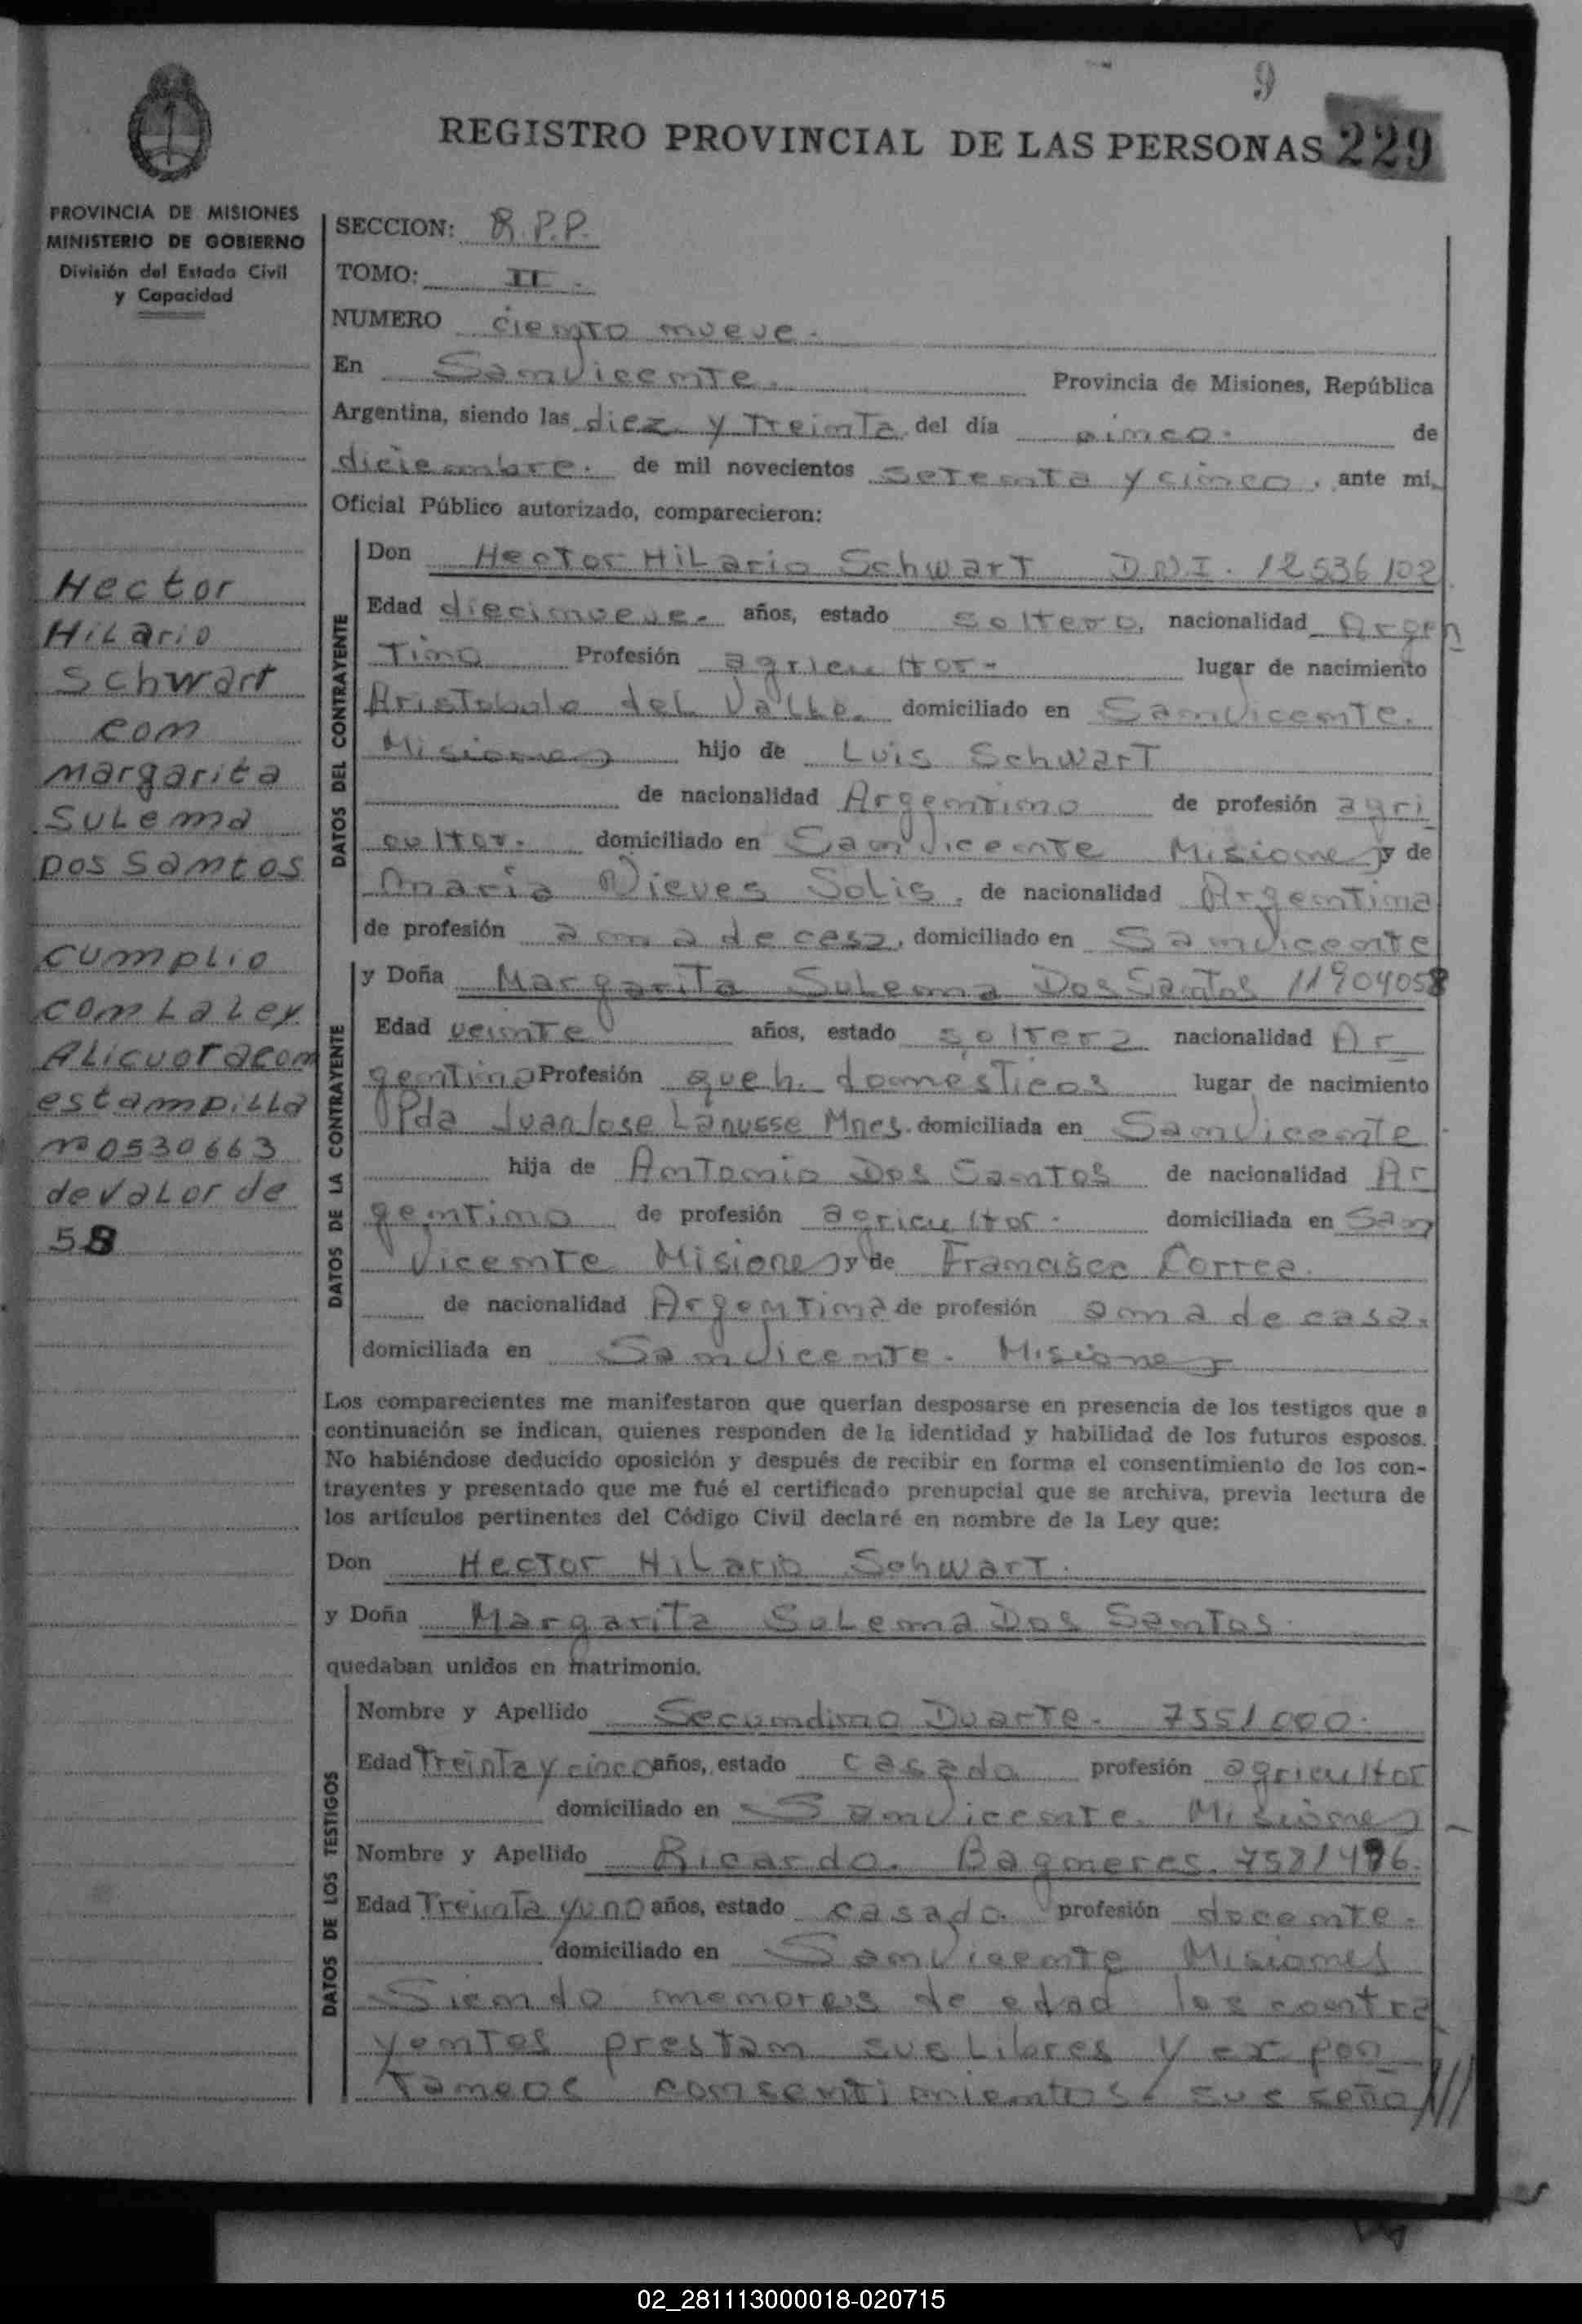 9
REGISTRO PROVINCIAL DE LAS PERSONAS 229
PROVINCIA DE MISIONES
MINISTERIO DE GOBIERNO
División del Estado Civil
y Capacidad
Hector
Hilario
Schwart
con
Margarita
Sulema
Dos Santos
Cumplio
con La Ley
Alicuota con
estampilla
nº 0530663
de valor de
58
SECCION: R.P.P.
TOMO: II.
NUMERO ciento nueve.
En San Vicente. Provincia de Misiones, República
Argentina, siendo las diez y treinta del día cinco. de
diciembre. de mil novecientos setenta y cinco, ante mi,
Oficial Público autorizado, comparecieron:
DATOS DEL CONTRAYENTE
Don Hector Hilario Schwart D.N.I. 12536102
Edad diecinueve. años, estado soltero, nacionalidad Argen
tino Profesión agricultor- lugar de nacimiento
Aristobulo del Valle. domiciliado en San Vicente.
Misiones hijo de Luis Schwart
de nacionalidad Argentino de profesión agri
cultor. domiciliado en San Vicente Misiones y de
Maria Nieves Solis, de nacionalidad Argentina
de profesión ama de casa, domiciliado en San Vicente
DATOS DE LA CONTRAYENTE
y Doña Margarita Sulema Dos Santos 11904058
Edad veinte años, estado soltera nacionalidad Ar
gentina Profesión queh. domesticos lugar de nacimiento
Pda Juan Jose Lanusse Mnes. domiciliada en San Vicente
hija de Antonio Dos Santos de nacionalidad Ar
gentino de profesión agricultor. domiciliada en San
Vicente Misiones y de Francisca Correa.
de nacionalidad Argentina de profesión ama de casa.
domiciliada en San Vicente. Misiones
Los comparecientes me manifestaron que querían desposarse en presencia de los testigos que a
continuación se indican, quienes responden de la identidad y habilidad de los futuros esposos.
No habiéndose deducido oposición y después de recibir en forma el consentimiento de los con-
trayentes y presentado que me fué el certificado prenupcial que se archiva, previa lectura de
los artículos pertinentes del Código Civil declaré en nombre de la Ley que:
Don Hector Hilario Schwart.
y Doña Margarita Sulema Dos Santos.
quedaban unidos en matrimonio.
DATOS DE LOS TESTIGOS
Nombre y Apellido Secundino Duarte. 7551000.
Edad Treinta y cinco años, estado casado profesión agricultor
domiciliado en San Vicente. Misiones
Nombre y Apellido Ricardo. Bagneres.
Edad Treinta y uno años, estado casado. profesión docente.
domiciliado en San Vicente Misiones
Siendo menores de edad los contra
yentes prestan sus Libres y expon
taneos consentimientos sus seño///
02_281113000018-020715